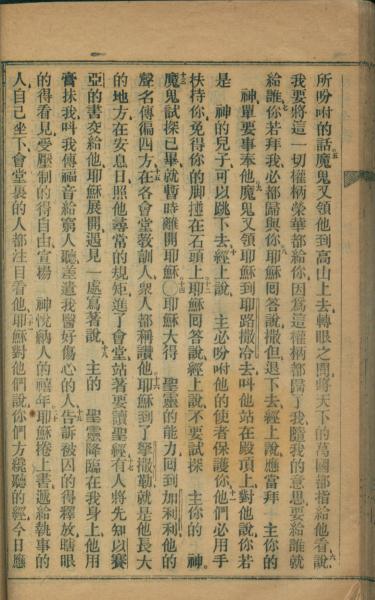 所吩咐的話五魔鬼又領他到高山上去轉眼之間將天下的萬國都指給他看說六
我要將這一切權柄榮華都給你因為這權柄都歸了我隨我的意思要給誰就
給誰七你若拜我必都歸與你八耶穌回答說撒但退下去經上說應當拜　主你的
神單要事奉他九魔鬼又領耶穌到耶路撒冷去叫他站在殿頂上對他說你若
是　神的兒子可以跳下去十經上說　主必吩咐他的使者保護你十一他們必用手
扶持你免得你的脚撞在石頭上十二耶穌回答說經上說不要試探　主你的　神
十三魔鬼試探已畢就暫時離開耶穌〇十四耶穌大得　聖靈的能力回到加利利他的
聲名傳徧四方十五在各會堂教訓人衆人都稱讚他十六耶穌到了拏撒勒就是他長大
的地方在安息日照他尋常的規矩進了會堂站著要讀聖經十七有人將先知以賽
亞的書交給他耶穌展開遇見一處寫著說十八主的　聖靈降臨在我身上他用
膏抹我叫我傳福音給窮人聽差遣我醫好傷心的人十九告訴被囚的得釋放瞎眼
的得看見受壓制的得自由宣揚　神悅納人的禧年二十耶穌捲上書遞給執事的
人自己坐下會堂裏的人都注目看他二十一耶穌對他們說你們方纔聽的經今日應